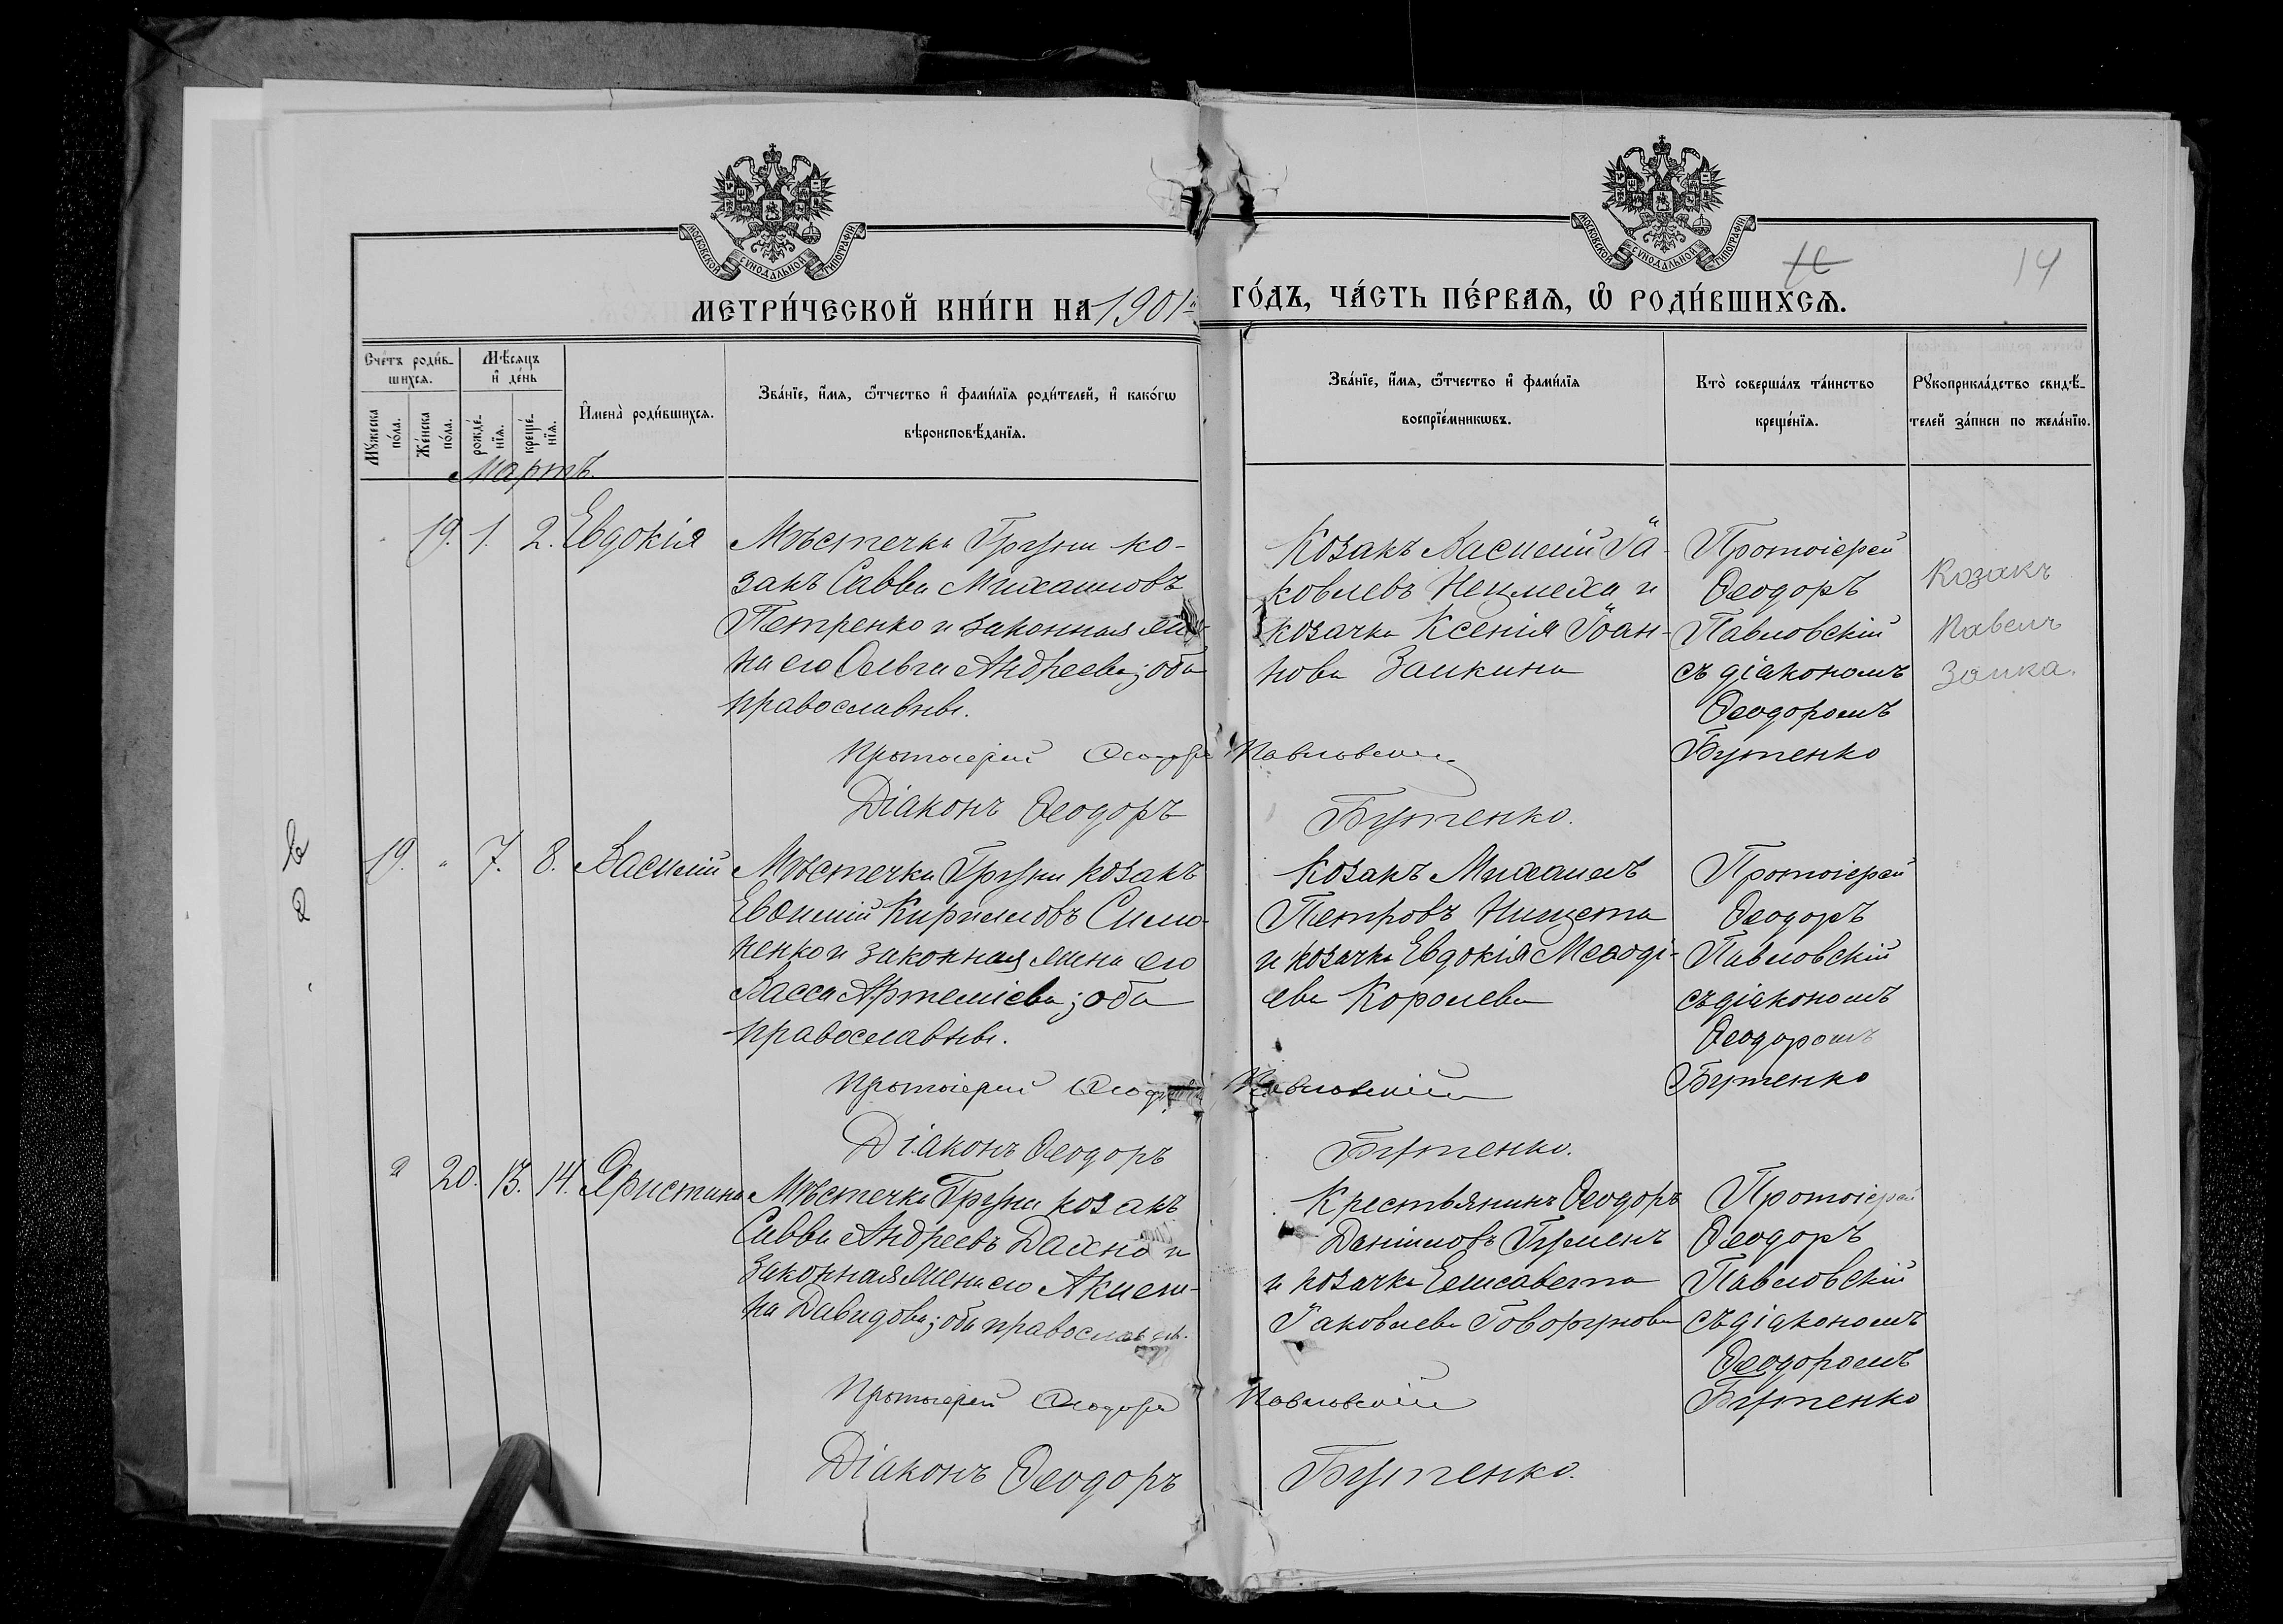 МОСКОВСКОЙ СѴНОДАЛЬНОЙ ТИПОГРАФІИ
МОСКОВСКОЙ СѴНОДАЛЬНОЙ ТИПОГРАФІИ
14
МЕТРИ́ЧЕСКОЙ КНИ́ГИ НА 1901й
ГО́ДЪ, ЧА́СТЬ ПЕ́РВАѦ, Ѡ҆ РОДИ́ВШИХСѦ.
Сче́тъ роди́в-
шихсѧ.
Мѣ́сѧцъ
и҆ де́нь
Мꙋ́жеска
по́ла.
Же́нска
по́ла.
рожде́-
нїѧ.
креще́-
нїѧ.
И҆мена̀ роди́вшихсѧ.
Зва́нїе, и҆́мѧ, ѻ҆́тчество и҆ фами́лїѧ роди́телей, и҆ како́гѡ
вѣроисповѣ́данїѧ.
Зва́нїе, и҆́мѧ, ѻ҆́тчество и҆ фами́лїѧ
воспрїе́мникѡвъ.
Кто̀ соверша́лъ та́инство
креще́нїѧ.
Рꙋкоприкла́дство свидѣ́-
телей за́писи по жела́нїю.
Мартъ.
19. 1. 2. Евдокія
Мѣстечка Груни ко-
закъ Савва Михаиловъ
Петренко и законная же-
на его Ольга Андреева; оба
православные.
Козакъ Василій Іа-
ковлевъ Нецмеха и
козачка Ксенія Іоан-
нова Заикина
Протоіерей
Ѳеодоръ
Павловскій
съ діакономъ
Ѳеодоромъ
Бутенко
Козакъ
Павелъ
Заика.
Протоіерей Ѳеодоръ Павловскій
Діаконъ Ѳеодоръ Бутенко.
19. " 7. 8. Василій
Мѣстечка Груни козакъ
Евѳимій Кирилловъ Симо-
ненко и законная жена его
Васса Артеміева; оба
православные.
Козакъ Михаилъ
Петровъ Нищета
и козачка Евдокія Меѳоді-
ева Королева
Протоіерей
Ѳеодоръ
Павловскій
съ діакономъ
Ѳеодоромъ
Бутенко
Протоіерей Ѳеодоръ Павловскій
Діаконъ Ѳеодоръ Бутенко.
" 20. 13. 14. Христина
Мѣстечка Груни козакъ
Савва Андреевъ Дахно и
законная жена его Акили-
на Давидова; оба православные.
Крестьянинъ Ѳеодоръ
Даніиловъ Гуменъ
и козачка Елисавета
Іаковлева Говорунова
Протоіерей
Ѳеодоръ
Павловскій
съ діакономъ
Ѳеодоромъ
Бутенко
Протоіерей Ѳеодоръ Павловскій
Діаконъ Ѳеодоръ Бутенко.